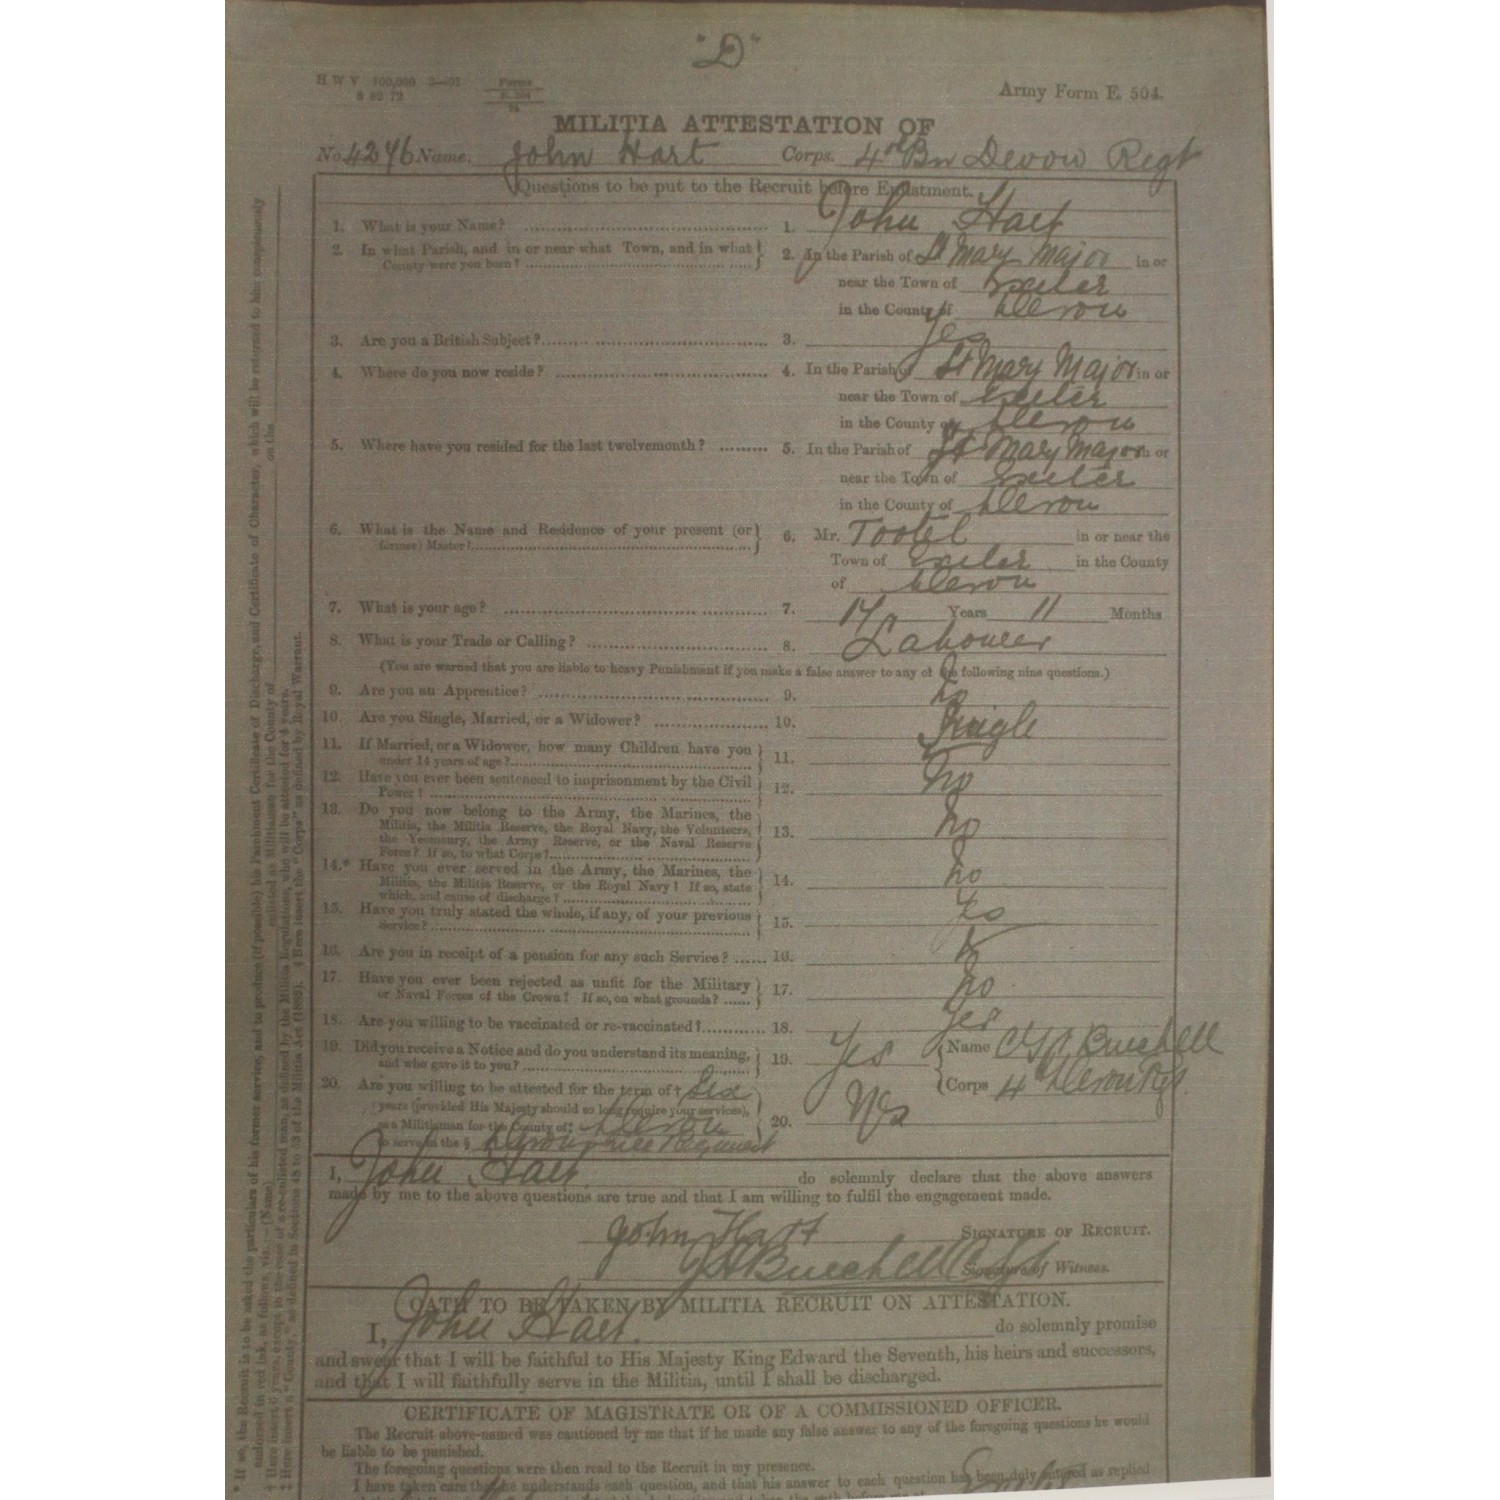 "D"
H W V 100,000 3—01 Forms
8 82 72
Army Form E. 504.
MILITIA ATTESTATION OF
No. 4246 Name. John Hart Corps. 4th Bn Devon Regt
Questions to be put to the Recruit before Enlistment.
1. What is your Name? 1. John Hart
2. In what Parish, and in or near what Town, and in what County were you born? 2. In the Parish of St Mary Major in or
near the Town of Exeter
in the County of Devon
3. Are you a British Subject? 3. Yes
4. Where do you now reside? 4. In the Parish of St Mary Major in or
near the Town of Exeter
in the County of Devon
5. Where have you resided for the last twelvemonth? 5. In the Parish of St Mary Major in or
near the Town of Exeter
in the County of Devon
6. What is the Name and Residence of your present (or former) Master? 6. Mr. Tootel in or near the
Town of Exeter in the County
of Devon
7. What is your age? 7. 17 Years 11 Months
8. What is your Trade or Calling? 8. Labourer
(You are warned that you are liable to heavy Punishment if you make a false answer to any of the following nine questions.)
9. Are you an Apprentice? 9. No
10. Are you Single, Married, or a Widower? 10. Single
11. If Married, or a Widower, how many Children have you
under 14 years of age? 11.
12. Have you ever been sentenced to imprisonment by the Civil
Power? 12. No
13. Do you now belong to the Army, the Marines, the
Militia, the Militia Reserve, the Royal Navy, the Volunteers,
the Yeomanry, the Army Reserve, or the Naval Reserve
Force? If so, to what Corps? 13. No
14.* Have you ever served in the Army, the Marines, the
Militia, the Militia Reserve, or the Royal Navy? If so, state
which, and cause of discharge? 14. No
15. Have you truly stated the whole, if any, of your previous
Service? 15. Yes
16. Are you in receipt of a pension for any such Service? 16.
17. Have you ever been rejected as unfit for the Military
or Naval Forces of the Crown? If so, on what grounds? 17. No
18. Are you willing to be vaccinated or re-vaccinated? 18. Yes
19. Did you receive a Notice and do you understand its meaning,
and who gave it to you? 19. Yes Name Burchell
Corps 4 Devon Rgt.
20. Are you willing to be attested for the term of † Six
years (provided His Majesty should so long require your services),
as a Militiaman for the County of ‡ Devon
to serve in the § Devonshire Regiment 20. Yes
I, John Hart do solemnly declare that the above answers
made by me to the above questions are true and that I am willing to fulfil the engagement made.
John Hart SIGNATURE OF RECRUIT.
Burchell Signature of Witness.
OATH TO BE TAKEN BY MILITIA RECRUIT ON ATTESTATION.
I, John Hart. do solemnly promise
and swear that I will be faithful to His Majesty King Edward the Seventh, his heirs and successors,
and that I will faithfully serve in the Militia, until I shall be discharged.
CERTIFICATE OF MAGISTRATE OR OF A COMMISSIONED OFFICER.
The Recruit above-named was cautioned by me that if he made any false answer to any of the foregoing questions he would
be liable to be punished.
The foregoing questions were then read to the Recruit in my presence.
I have taken care that he understands each question, and that his answer to each question has been duly entered as replied
* If so, the Recruit is to be asked the particulars of his former service, and to produce (if possible) his Parchment Certificate of Discharge, and Certificate of Character, which will be returned to him conspicuously
endorsed in red ink, as follows, viz.:—(Name) enlisted as Militiaman for the County of on the
† Here insert 6 years, except in the case of a re-enlisted man, as defined by the Militia Regulations, who will be attested for 4 years.
‡ Here insert a "County," as defined in Sections 48 to 53 of the Militia Act (1882). § Here insert the "Corps" as defined by Royal Warrant.